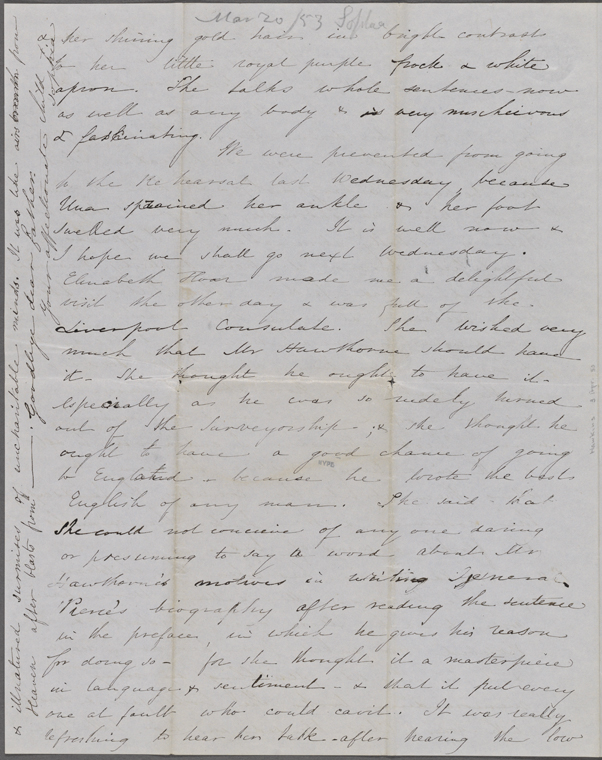 Mar 20/53 Sophia
her shining gold hair in bright contrast
to her little royal purple frock & white
apron. She talks whole sentences now
as well as any body & is very mischievous
& fascinating.
We were prevented from going
to the Rehearsal last Wednesday because
Una sprained her ankle & her foot
swelled very much. It is well now &
I hope we shall go next Wednesday.
Elizabeth Hoar made me a delightful
visit the other day & was full of the
Liverpool Consulate. She wished very
much that Mr Hawthorne should have
it - She thought he ought to have it -
especially as he was so rudely turned
out of the Surveyorship - ; & she thought he
ought to have a good chance of going
to England - because he wrote the best
English of any man. She said that
She could not conceive of any one daring
or presuming to say a word about Mr
Hawthorne's motives in writing General
Pierce's biography after reading the sentence
in the preface, in which he gives his reason
for doing so - for she thought it a masterpiece
in language & sentiment - & that it put every
one at fault who could cavil. It was really
refreshing to hear her talk - after hearing the low
& illnatured surmises of uncharitable minds. It was like airs from
Heaven after blasts from — Goodbye dear father
Your affectionate child
Sophia